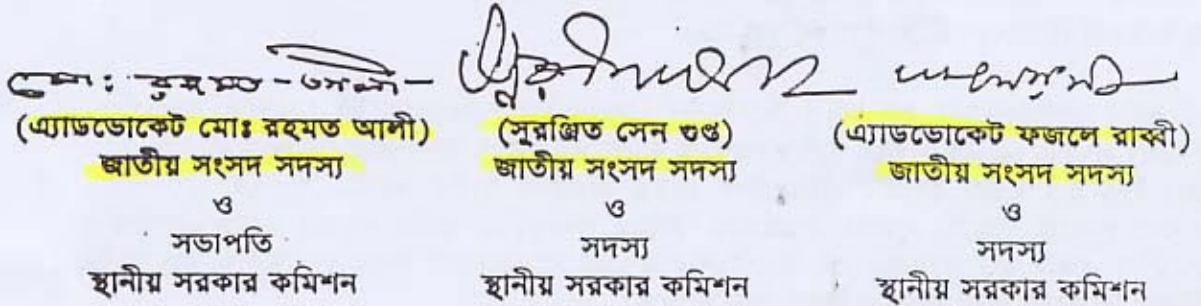 মোঃ রহমত আলী
(এ্যাডভোকেট মোঃ রহমত আলী)
জাতীয় সংসদ সদস্য
ও
সভাপতি
স্থানীয় সরকার কমিশন
(সুরঞ্জিত সেন গুপ্ত)
জাতীয় সংসদ সদস্য
ও
সদস্য
স্থানীয় সরকার কমিশন
(এ্যাডভোকেট ফজলে রাব্বী)
জাতীয় সংসদ সদস্য
ও
সদস্য
স্থানীয় সরকার কমিশন